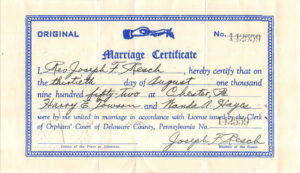 ORIGINAL
No. 149559
Marriage Certificate
I, Rev Joseph F. Resch, hereby certify that on
the thirtieth day of August one thousand
nine hundred fifty-two at Chester, Pa
Harry E. Towson and Wanda A. Hayes
were by me united in marriage in accordance with License issued by the Clerk
of Orphans' Court of Delaware County, Pennsylvania No. 149559
Joseph F. Resch